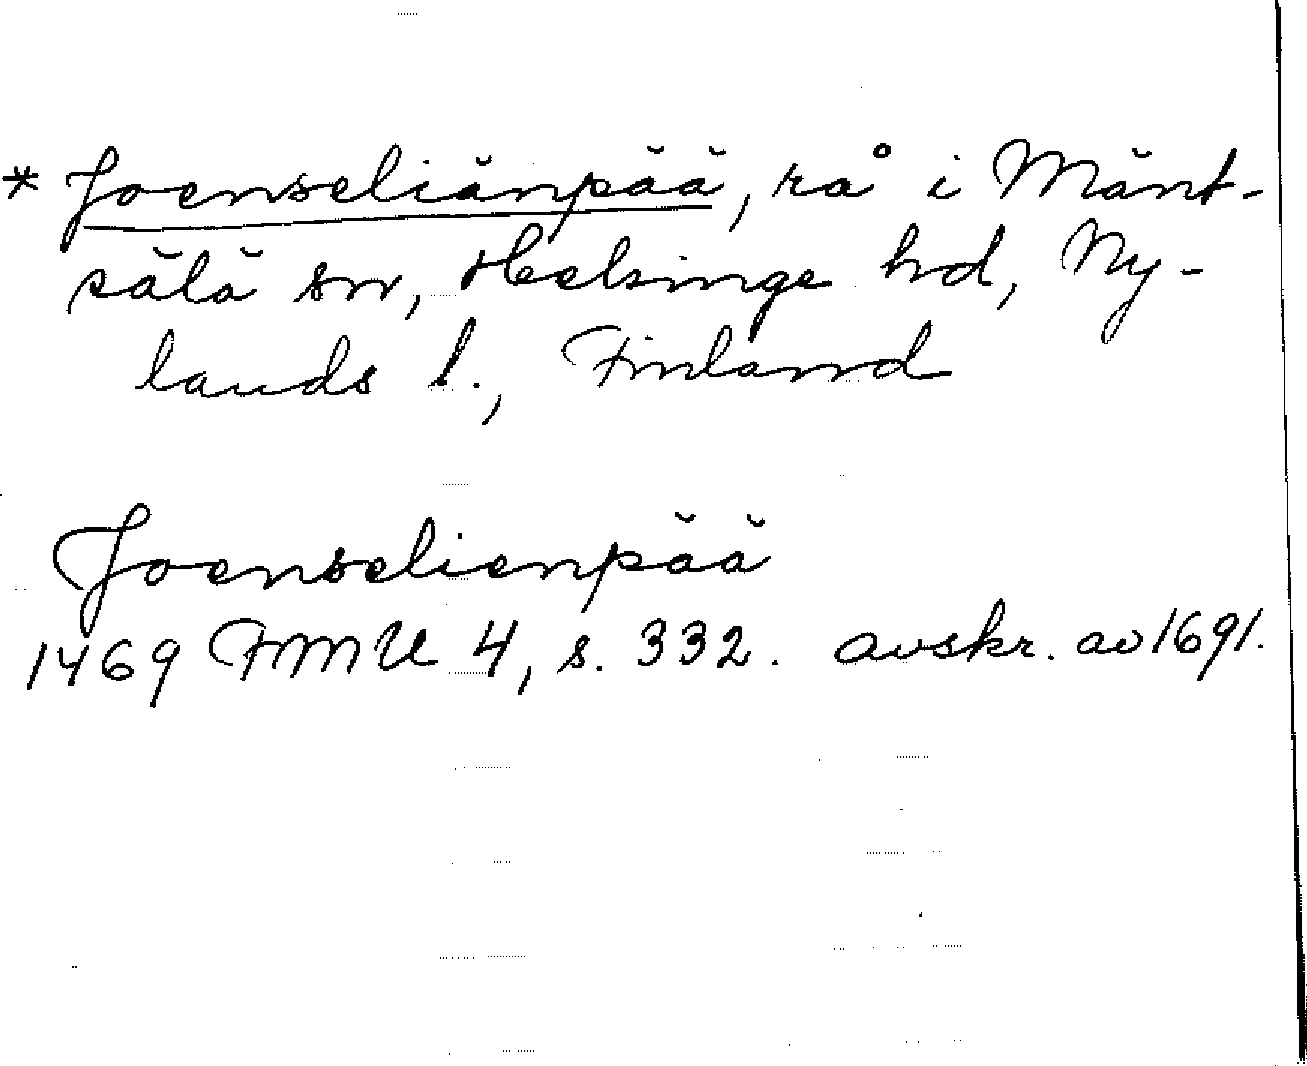 * Joenseliänpää, rå i Mänt-
sälä sn, Helsinge hd, Ny-
lands l., Finland
Joenselienpää
1469 FMU 4, s. 332. avskr. av 1691.